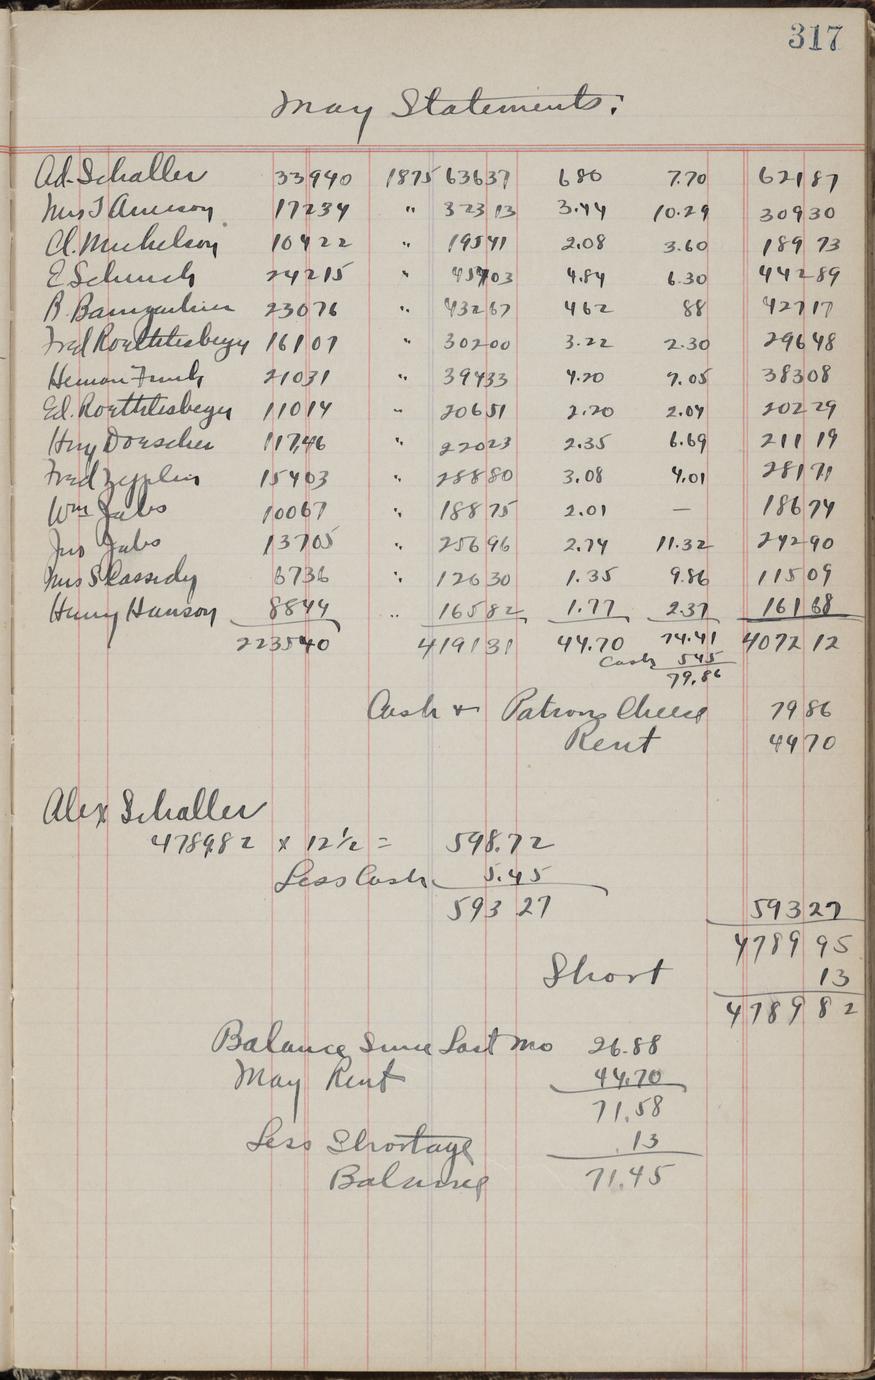 317
May Statements:
Ad. Schaller 33940 1875 63637 6 80 7.70 621 87
Mrs T Amerson 17234 " 323 13 3.44 10.29 309 30
Cl. Michelson 10422 " 195 41 2.08 3.60 189 73
E Schuch 24215 " 454 03 4.84 6.30 442 89
B. Baumgartner 23076 " 432 67 4 62 88 427 17
Fred Roethlisberger 16107 " 302 00 3.22 2.30 296 48
Heman Funk 21031 " 394 33 4.20 7.05 383 08
Ed. Roethlisberger 11014 " 206 51 2.20 2.04 202 29
Hny Doescher 11746 " 220 23 2.35 6.69 211 19
Fred Zepplin 15403 " 288 80 3.08 4.01 281 71
Wm Jabs 10067 " 188 75 2.01 — 186 74
Jno Jabs 13705 " 256 96 2.74 11.32 242 90
Mrs S Cassidy 6736 " 126 30 1.35 9.86 115 09
Henry Hanson 8844 " 165 82 1.77 2.37 161 68
223540 4191 31 44.70 74.41 4072 12
Cash 5 45
79.86
Cash & Patrons Cheese 79 86
Rent 44 70
Alex Schaller
4789.82 x 12 1/2 = 598.72
Less Cash 5.45
593 27 593 27
4789 95
Short 13
4789 82
Balance Since Last Mo 26.88
May Rent 44.70
71.58
Less Shortage .13
Balance 71.45